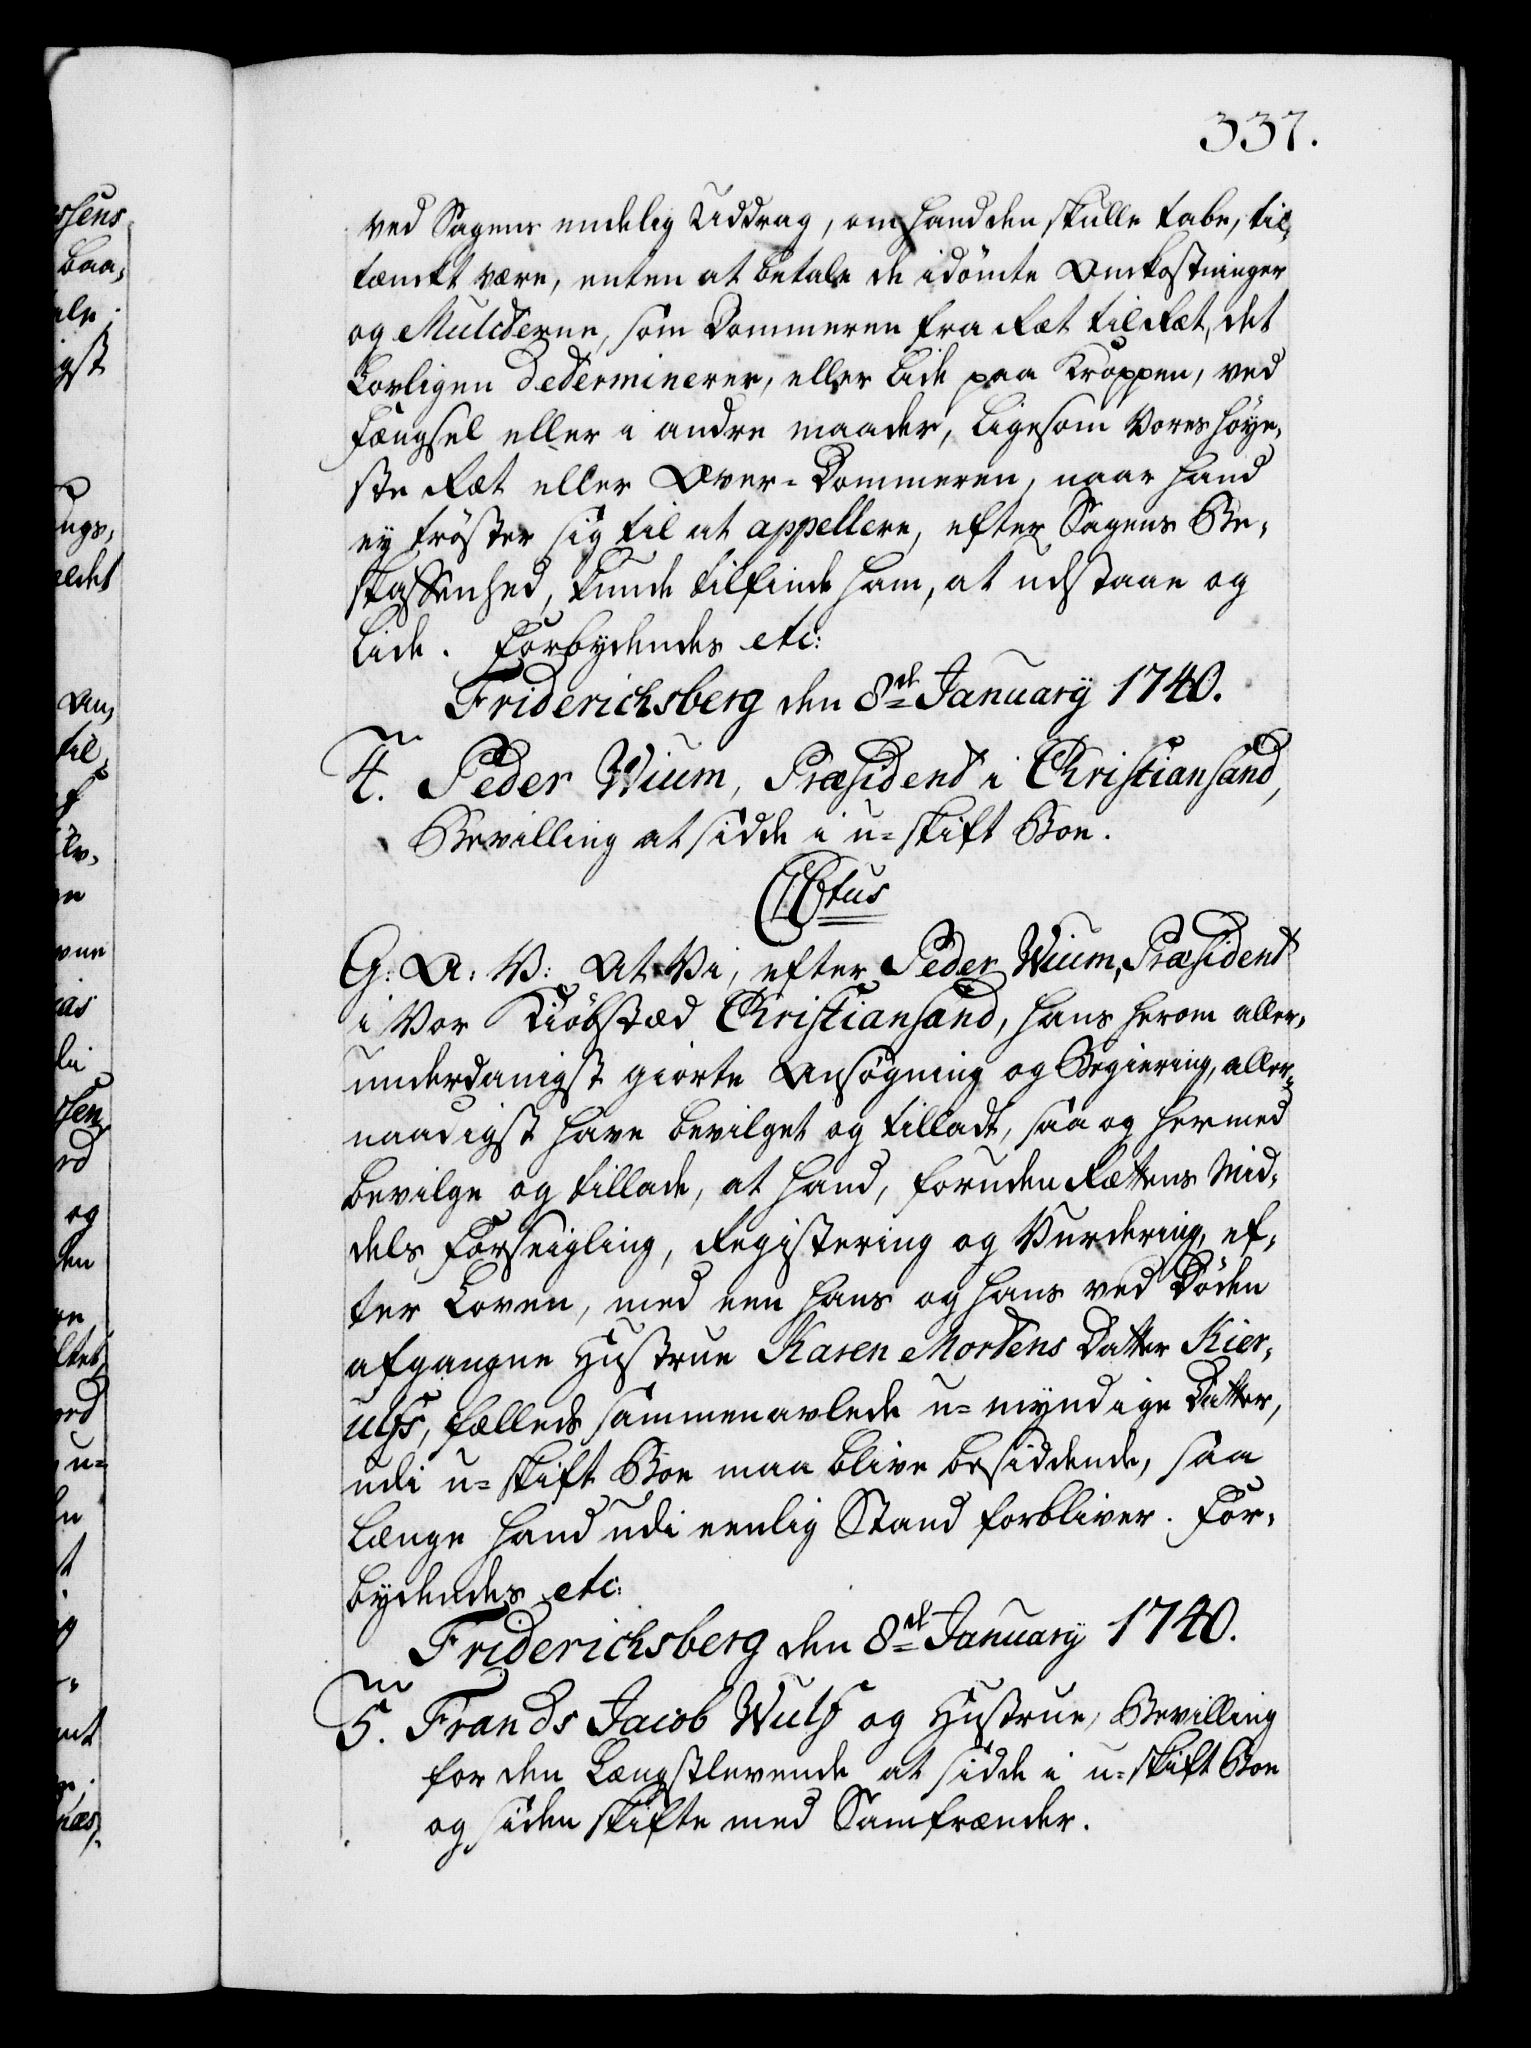 337.
ved Sagens endelig Uddrag, om hand den skulle tabe, til-
tænckt være, enten at betale de idömte Omkostninger
og Mulcterne, som Dommeren fra Ræt til Ræt, det
Lovligen determinerer, eller lide paa Kroppen, ved
Fængsel eller i andre maader, ligesom Vores Høye-
ste Ræt eller Over-Dommeren, naar hand
ey tröster sig til at appellere, efter Sagens Be-
skaffenhed, kunde tilfinde ham, at udstaae og
lide. Forbydendes etc:
Friderichsberg den 8de January 1740.
4. Peder Wium, Præsident i Christiansand,
Bevilling at sidde i u-skift Boe.
C6tus
G: A: V: At Vi, efter Peder Wium, Præsident
i Vor Kiöbstæd Christiansand, hans herom aller-
underdanigst giorte Ansøgning og Begiering, aller-
naadigst have bevilget og tilladt, saa og hermed
bevilge og tillade, at hand, foruden Rættens Mid-
dels Forseigling, Registering og Vurdering, ef-
ter Loven, med een hans og hans ved Döden
afgangne Hustrue Karen Mortens Datter Kier-
ulfs, fælleds sammenavlede u-myndige Datter,
udi u-skift Boe maa blive besiddende, saa
længe hand udi eenlig Stand forbliver. For-
bydendes etc:
Friderichsberg den 8de January 1740.
5. Frands Jacob Wulf og Hustrue, Bevilling
for den Længstlevende at sidde i u-skift Boe
og siden skifte med Samfrænder.